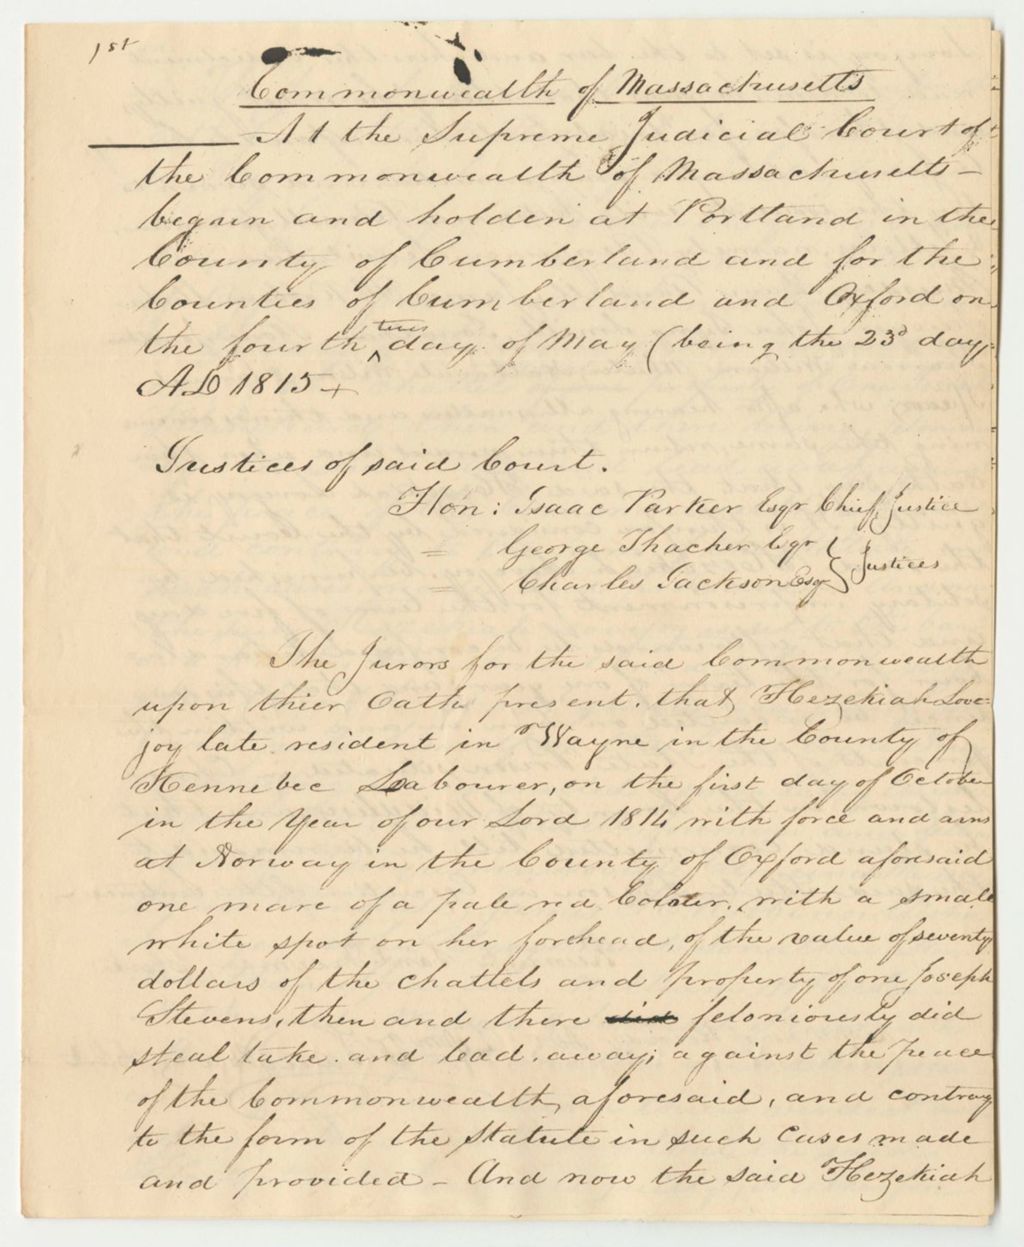 1st
Commonwealth of Massachusetts
At the Supreme Judicial Court of
the Commonwealth of Massachusetts -
begun and holden at Portland in the
County of Cumberland and for the
Counties of Cumberland and Oxford on
the fourth tues day of May (being the 23d day
AD 1815 +
Justices of said Court.
Hon: Isaac Parker Esqr Chief Justice
= George Thacher Eqr } Justices
= Charles Jackson Esqr
The Jurors for the said Commonwealth
upon thier Oath present. that Hezekiah Love=
joy late resident in Wayne in the County of
Kennebec Labourer, on the first day of October
in the Year of our Lord 1814 with force and arms
at Norway in the County of Oxford aforesaid
one mare of a pale red Coloter, with a small
white spot on her forehead, of the value of seventy
dollars of the chattels and property of one Joseph
Stevens, then and there did feloniously did
steal take. and lead. away; against the peace
of the Commonwealth aforesaid, and contray
to the form of the Statute in such Cases made
and provided - And now the said Hezekiah